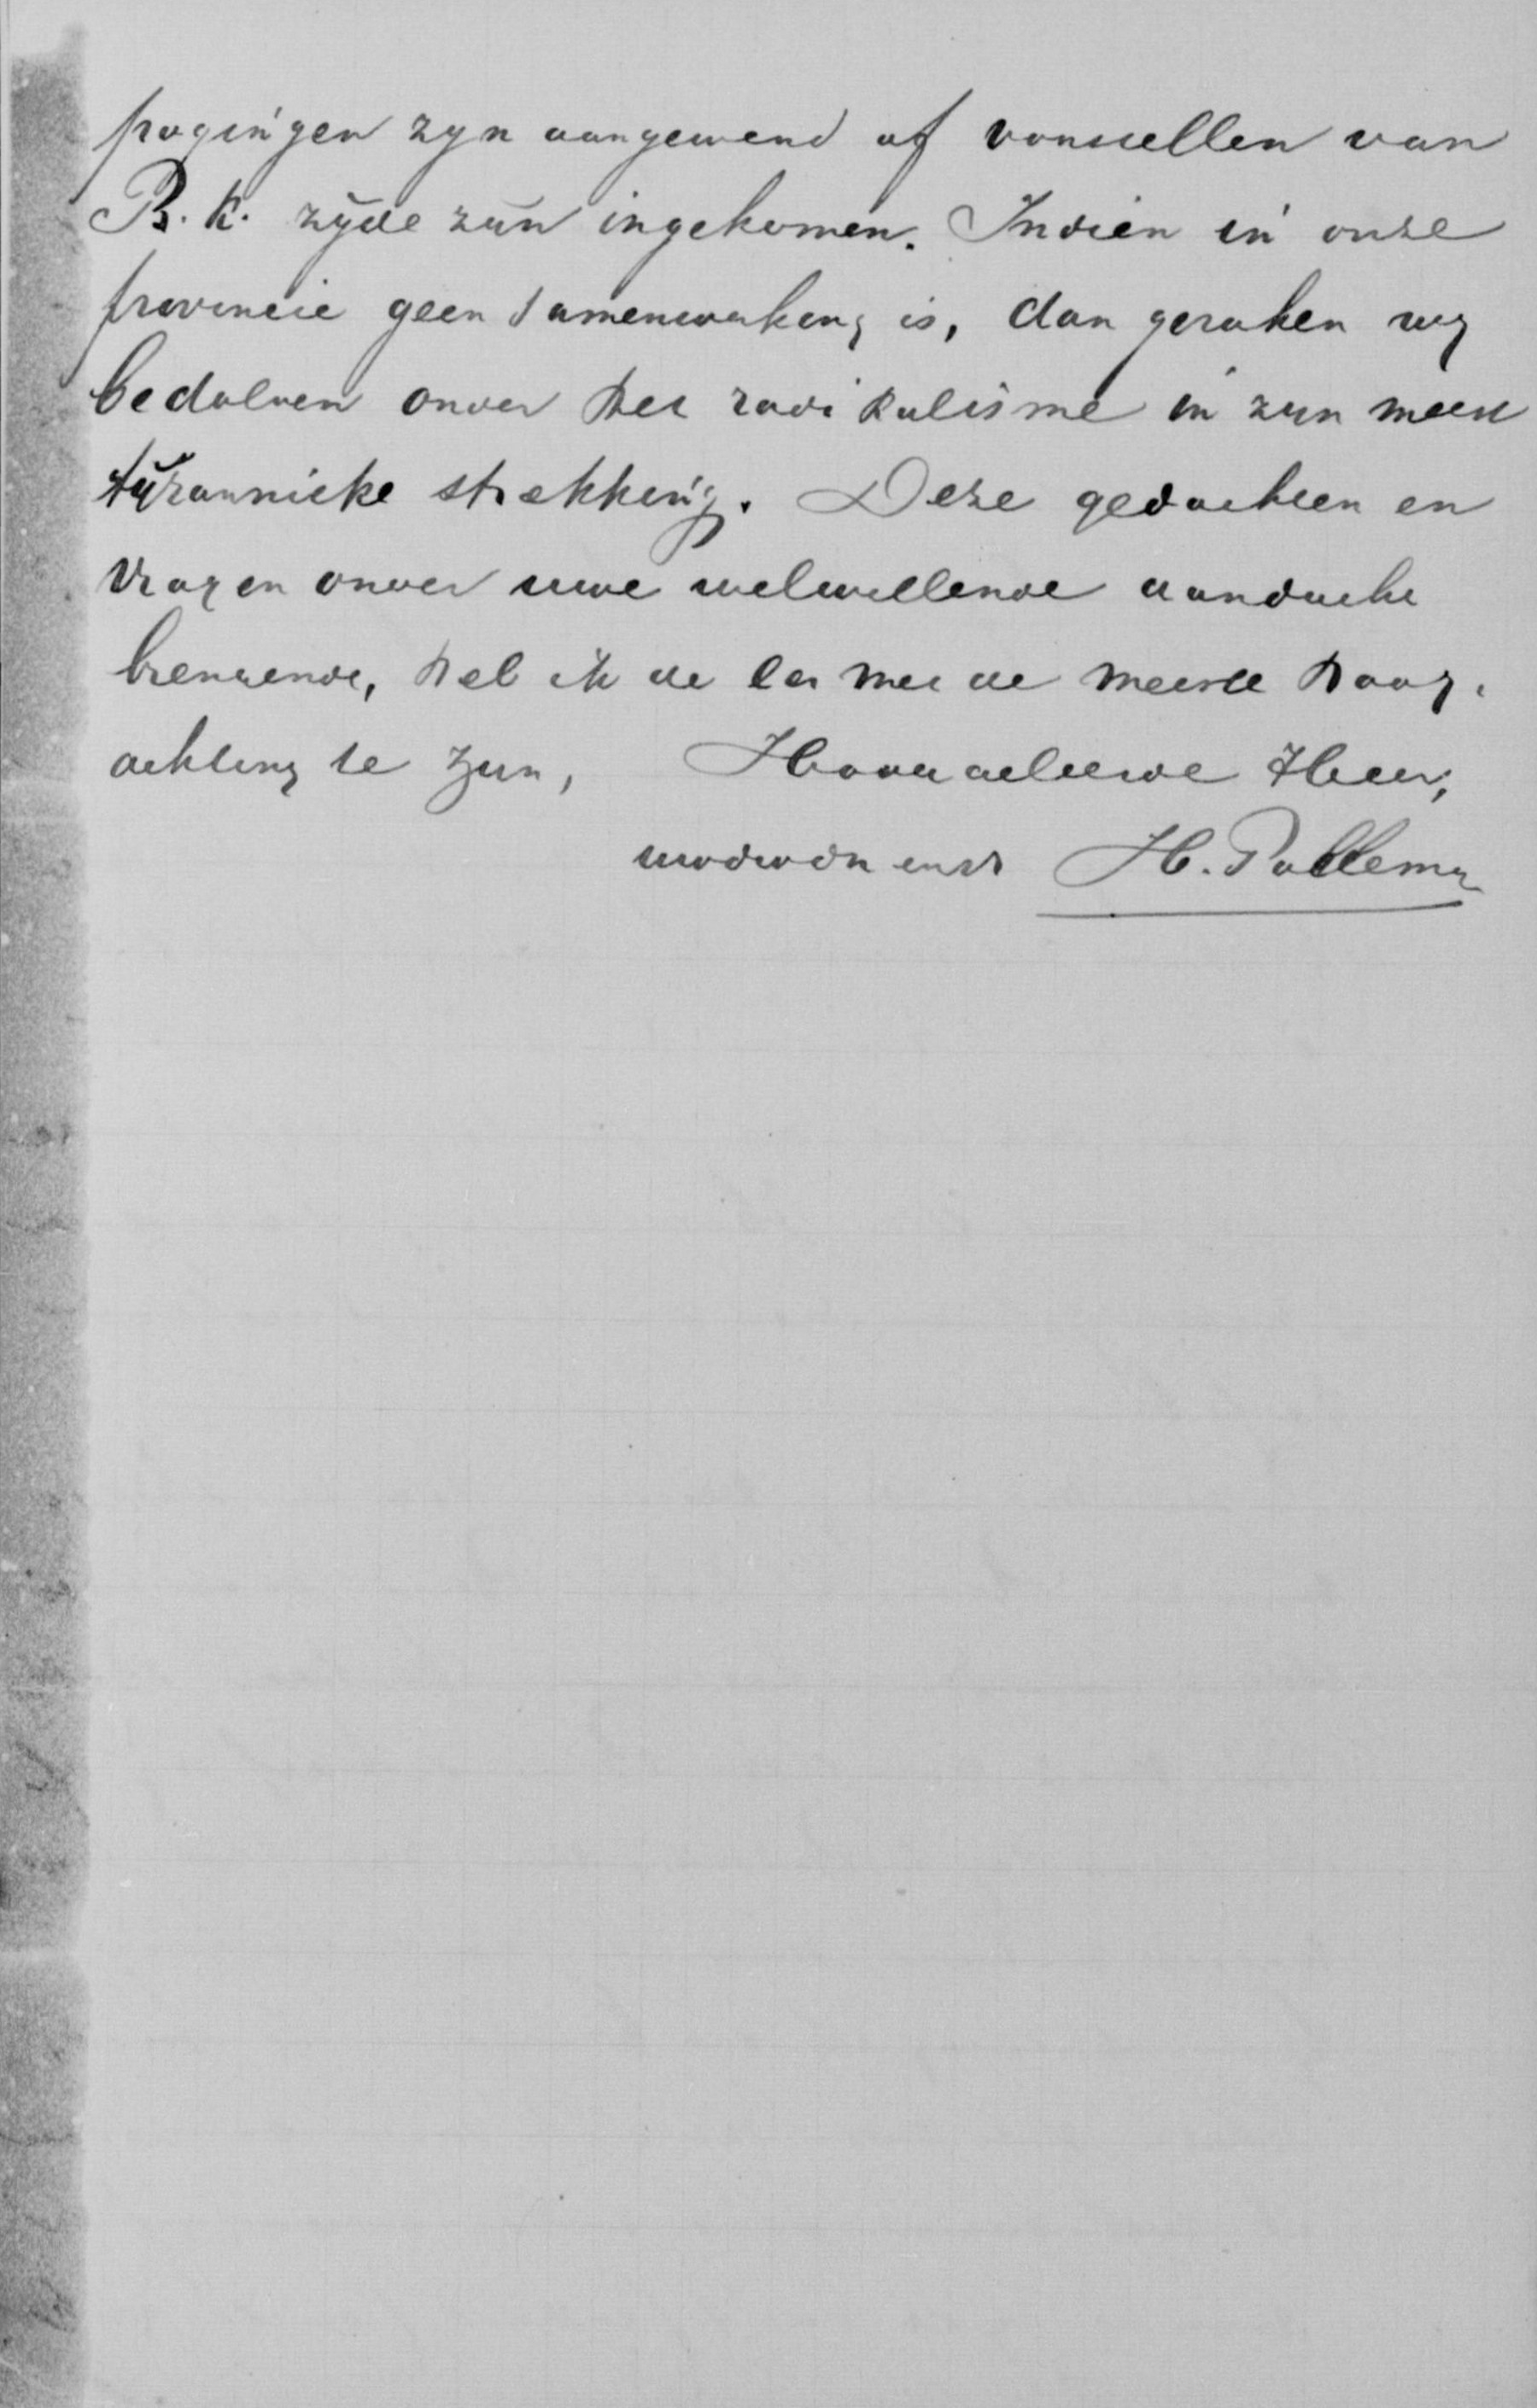 pogingen zyn aangewend of voorstellen van
R.K. zijde zijn ingekomen. Indien in onze
provincie geen samenwerking is, dan geraken wij
bedolven onder het radikalisme in zijn meest
tijrannieke strekking. Deze gedachten en
vragen onder uwe welwillende aandacht
brengende, heb ik de eer met de meeste hoog-
achting te zijn, Hooggeleerde Heer,
uwdwdn